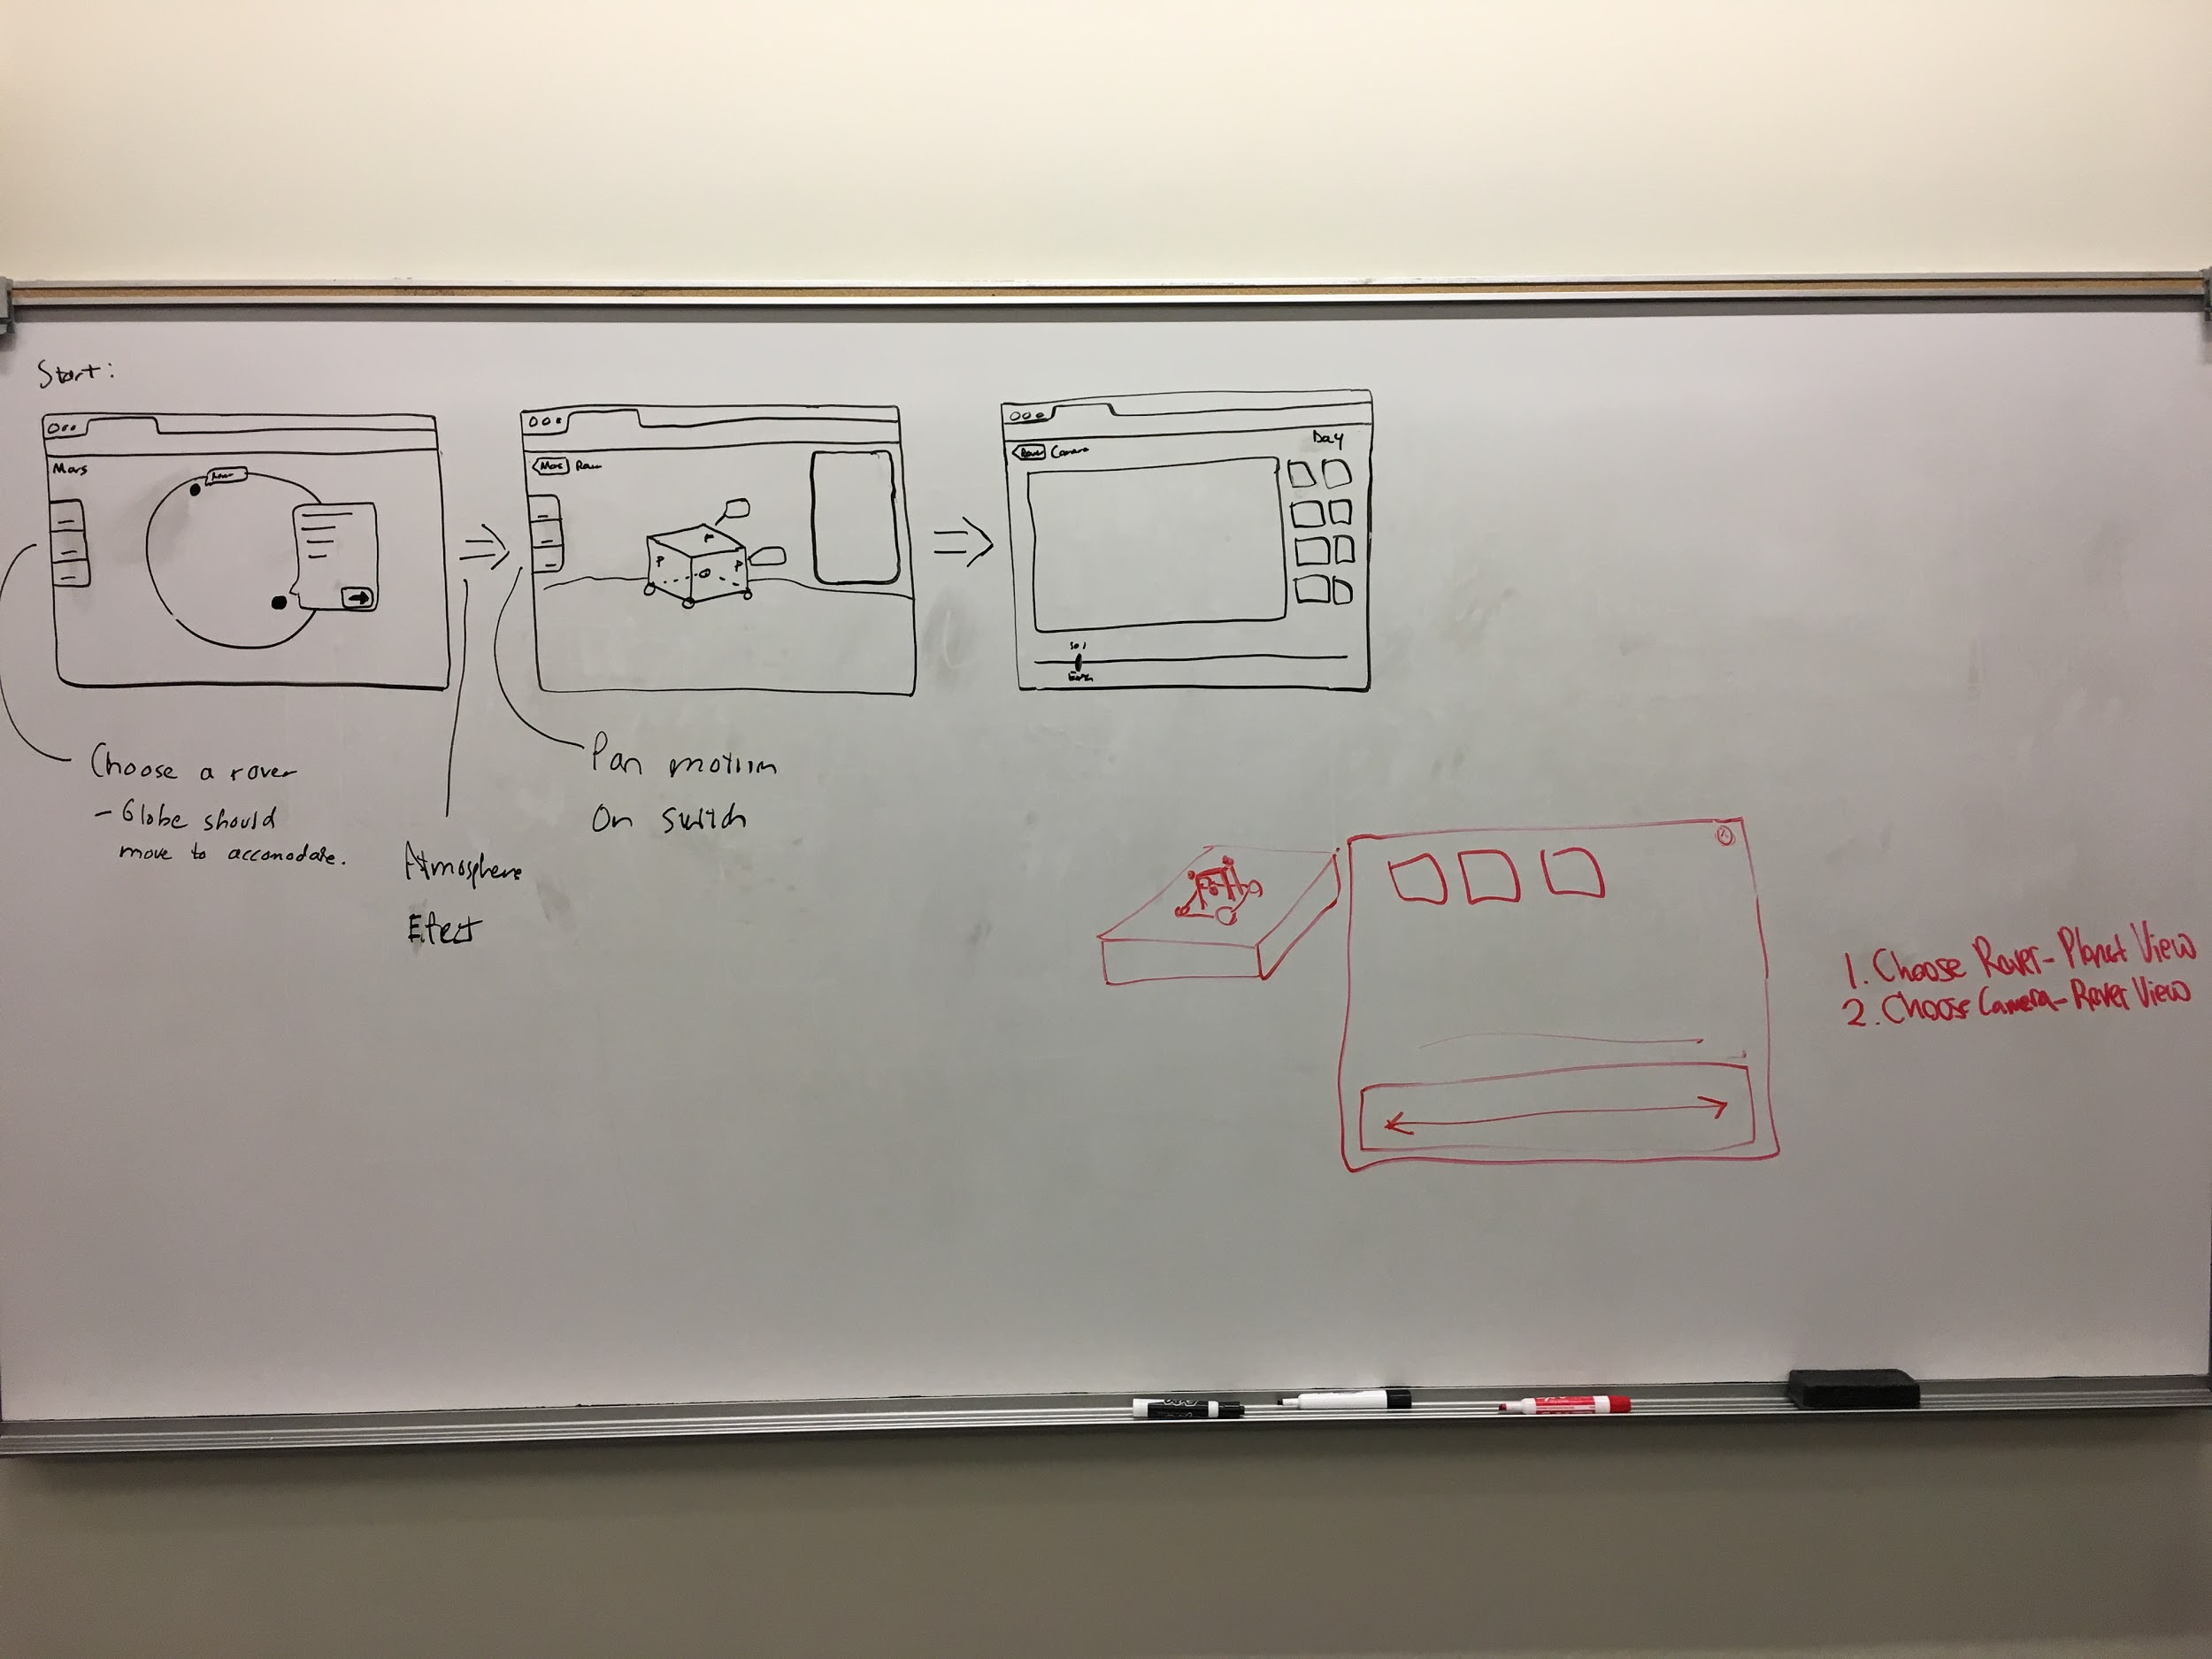 Start:
Mars
Rover
Mars
Rover
P
P
P
Rover
Camera
Day
Sol
Earth
Choose a rover
- Globe should
move to accomodate.
Atmosphere
Efect
Pan motion
On switch
1. Choose Rover-Planet View
2. Choose Camera-Rover View